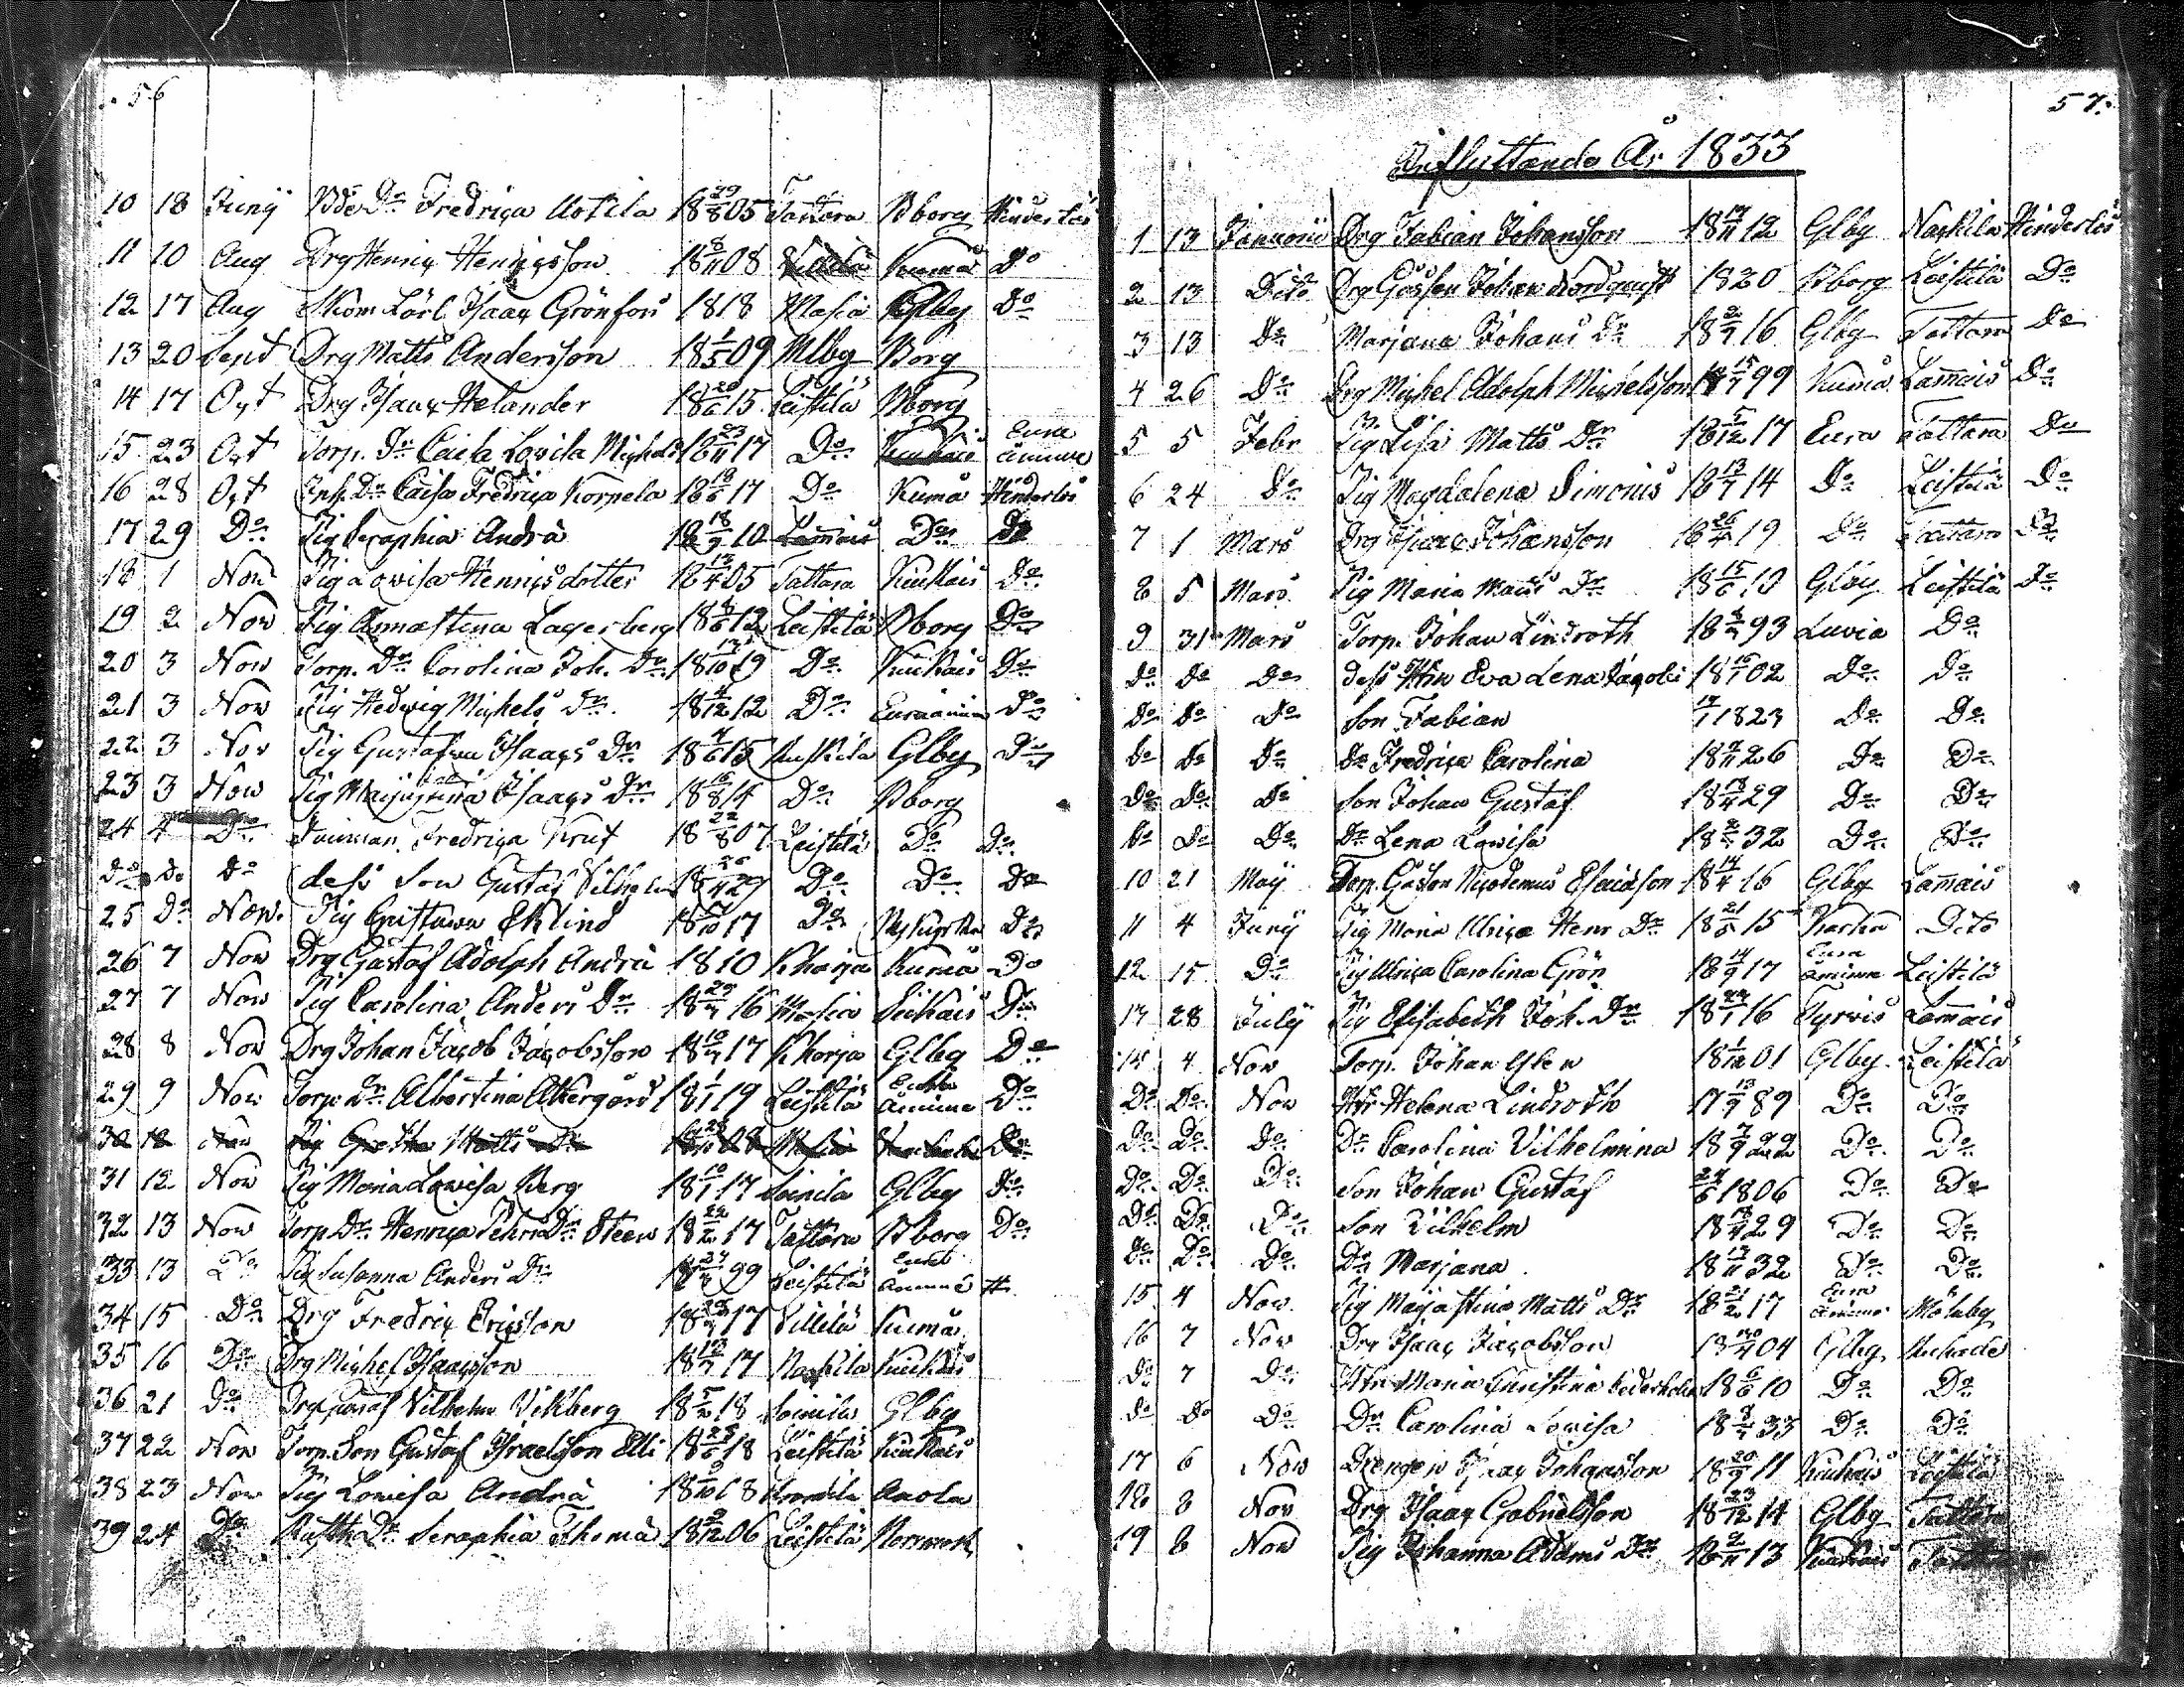 56
10 18 Junij Bde Dr Fredrica Aotila 18 29/8 05 Tattara Bborg Hinderlös
11 10 Aug Drg Henric Henricsson 18 8/11 08 Kumå Do
12 17 Aug Skom. Lärl Isaac Grönfors 1818 Masia Glby Do
13 20 Sept Drg Matts Andersson 18 1/5 09 Mlby Borg
14 17 Oct Drg Isaac Helander 18 20/6 15 Leistilä Bborg
15 23 Oct Torp. Dr Caisa Lovisa Michels 18 23/11 17 Do Eura åminne
16 28 Oct Dr Caisa Fredrica Kornela 18 19/6 17 Do Kumo Hinderlös
17 29 Do Pig Seraphia Andrä 18 18/9 10 Lammais Do Do
18 1 Nov Pig Lovisa Henricsdotter 18 13/4 05 Tattara Kiukais Do
19 2 Nov Pig Annastina Lagerberg 18 8/6 12 Leistilä Bborg Do
20 3 Nov Torp. Dr Carolina Joh. Dr 18 17/10 19 Do Kiukais Do
21 3 Nov Pig Hedvig Michels Dr 18 4/12 12 Do Euraåminne Do
22 3 Nov Pig Gustafva Isaacs Dr 18 4/6 15 Glby Do
23 3 Nov Pig Majastina Isaacs Dr 18 16/8 14 Do Bborg
24 4 Do Fredrica Kruf 18 22/8 07 Leistilä Do Do
Do Do Do dess son Gustaf Vilhelm 18 26/4 29 Do Do Do
25 Do Nov. Pig Gustava Eklind 18 17 Do Nykyrka Do
26 7 Nov Drg Gustaf Adolph Andrä 1810 Kharja Kumå Do
27 7 Nov Pig Carolina Anders Dr 18 29/4 16 Masia Do
28 8 Nov Drg Johan Jacob Jacobsson 18 10/7 17 Kharja Glby Do
29 9 Nov Torp. Dr Albertina Åkergård 18 1/1 19 Leistilä Eura Åminne Do
30 12 Nov Pig Greta Matts Dr 08 Masia Do
31 12 Nov Pig Maria Lovisa Berg 18 10/1 17 Soinila Glby Do
32 13 Nov Torp. Dr Henrica Pehrs Dr Steen 18 22/2 17 Tattara Bborg Do
33 13 Do Pig Susanna Anders Dr 99 Leistilä Eura Åminne H
34 15 Do Drg Fredric Ericsson 17 Villilä Kumå
35 16 Do Drg Michel Isaacsson 18 12/7 17 Naskila Kiukais
36 21 Do Drg Gustaf Vilhelm Vikberg 18 5/2 18 Soinila Glby
37 22 Nov Torp. Son Gustaf Israelsson Elli 18 28/6 18 Leistilä Kiukais
38 23 Nov Pig Lovisa Andrä 18 9/10 18
39 24 Do Rusth. Dr Seraphia Thoma 18 9/12 06 Leistilä Norrmark
57.
Inflyttande År 1833
1 13 Januarii Drg Fabian Johansson 18 17/11 12 Glby Naskila Hinderlös
2 13 Dito Drg Gossen Johan Nordqvist 1820 Bborg Leistilä Do
3 13 Do Marjana Johans Dr 18 2/7 16 Glby Tattara Do
4 26 Do Drg Michel Adolph Michelsson 17 15/7 99 Kumå Lammais Do
5 5 Febr Pig Lisa Matts Dr 18 5/12 17 Eura Tattara Do
6 24 Do Pig Magdalena Simonis 18 12/7 14 Do Leistilä Do
7 1 Mars Drg Isaac Johansson 18 26/4 19 Do Tattara Do
8 5 Mars Pig Maria Matts Dr 18 15/6 10 Glby Leistilä Do
9 31 Mars Torp. Johan Lindroth 93 Luvia Do
Do Do Do dess Hu Eva Lena Jacobs 18 16/1 02 Do Do
Do Do Do Son Fabian 12/1 1823 Do Do
Do Do Do Dr Fredrica Carolina 18 9/11 26 Do Do
Do Do Do Son Johan Gustaf 18 13/4 29 Do Do
Do Do Do Dr Lena Lovisa 32 Do Do
10 21 Maij Torp. Gosson Nicodemus Esaiasson 18 14/4 16 Glby Lammais
11 4 Junij Pig Maria Ulrica Henr Dr 18 21/6 15 Karkku Dito
12 15 Do Pig Ulrica Carolina Grön 18 14/9 17 Eura åminne Leistilä
13 28 Julij Pig Elisabeth Joh. Dr 18 22/1 16 Tyrvis Lammais
14 4 Nov Torp. Johan Glen 18 1/12 01 Glby. Leistilä
Do Do Nov Hu Helena Lindroth 17 13/9 89 Do Do
Do Do Do Dr Carolina Vilhelmina 18 7/9 22 Do Do
Do Do Do Son Johan Gustaf 24/6 1806 Do Do
Do Do Do Son Vilhelm 18 18/4 29 Do Do
Do Do Do Dr Marjana 18 13/11 32 Do Do
15 4 Nov. Pig Majastina Matts Dr 18 21/2 17 Eura åminne
16 7 Nov Drg Isaac Jacobsson 04 Glby
Do 7 Do Hu Maria Christina 18 6/6 10 Do Do
Do Do Do Dr Carolina Lovisa 33 Do Do
17 6 Nov Drengen Isaac Johansson 18 20/9 11 Kiukais Leistilä
18 8 Nov Drg Isaac Gabrielsson 18 23/12 14 Glby Tattara
19 8 Nov Pig Johanna Adams Dr 18 2/11 13 Kiukais